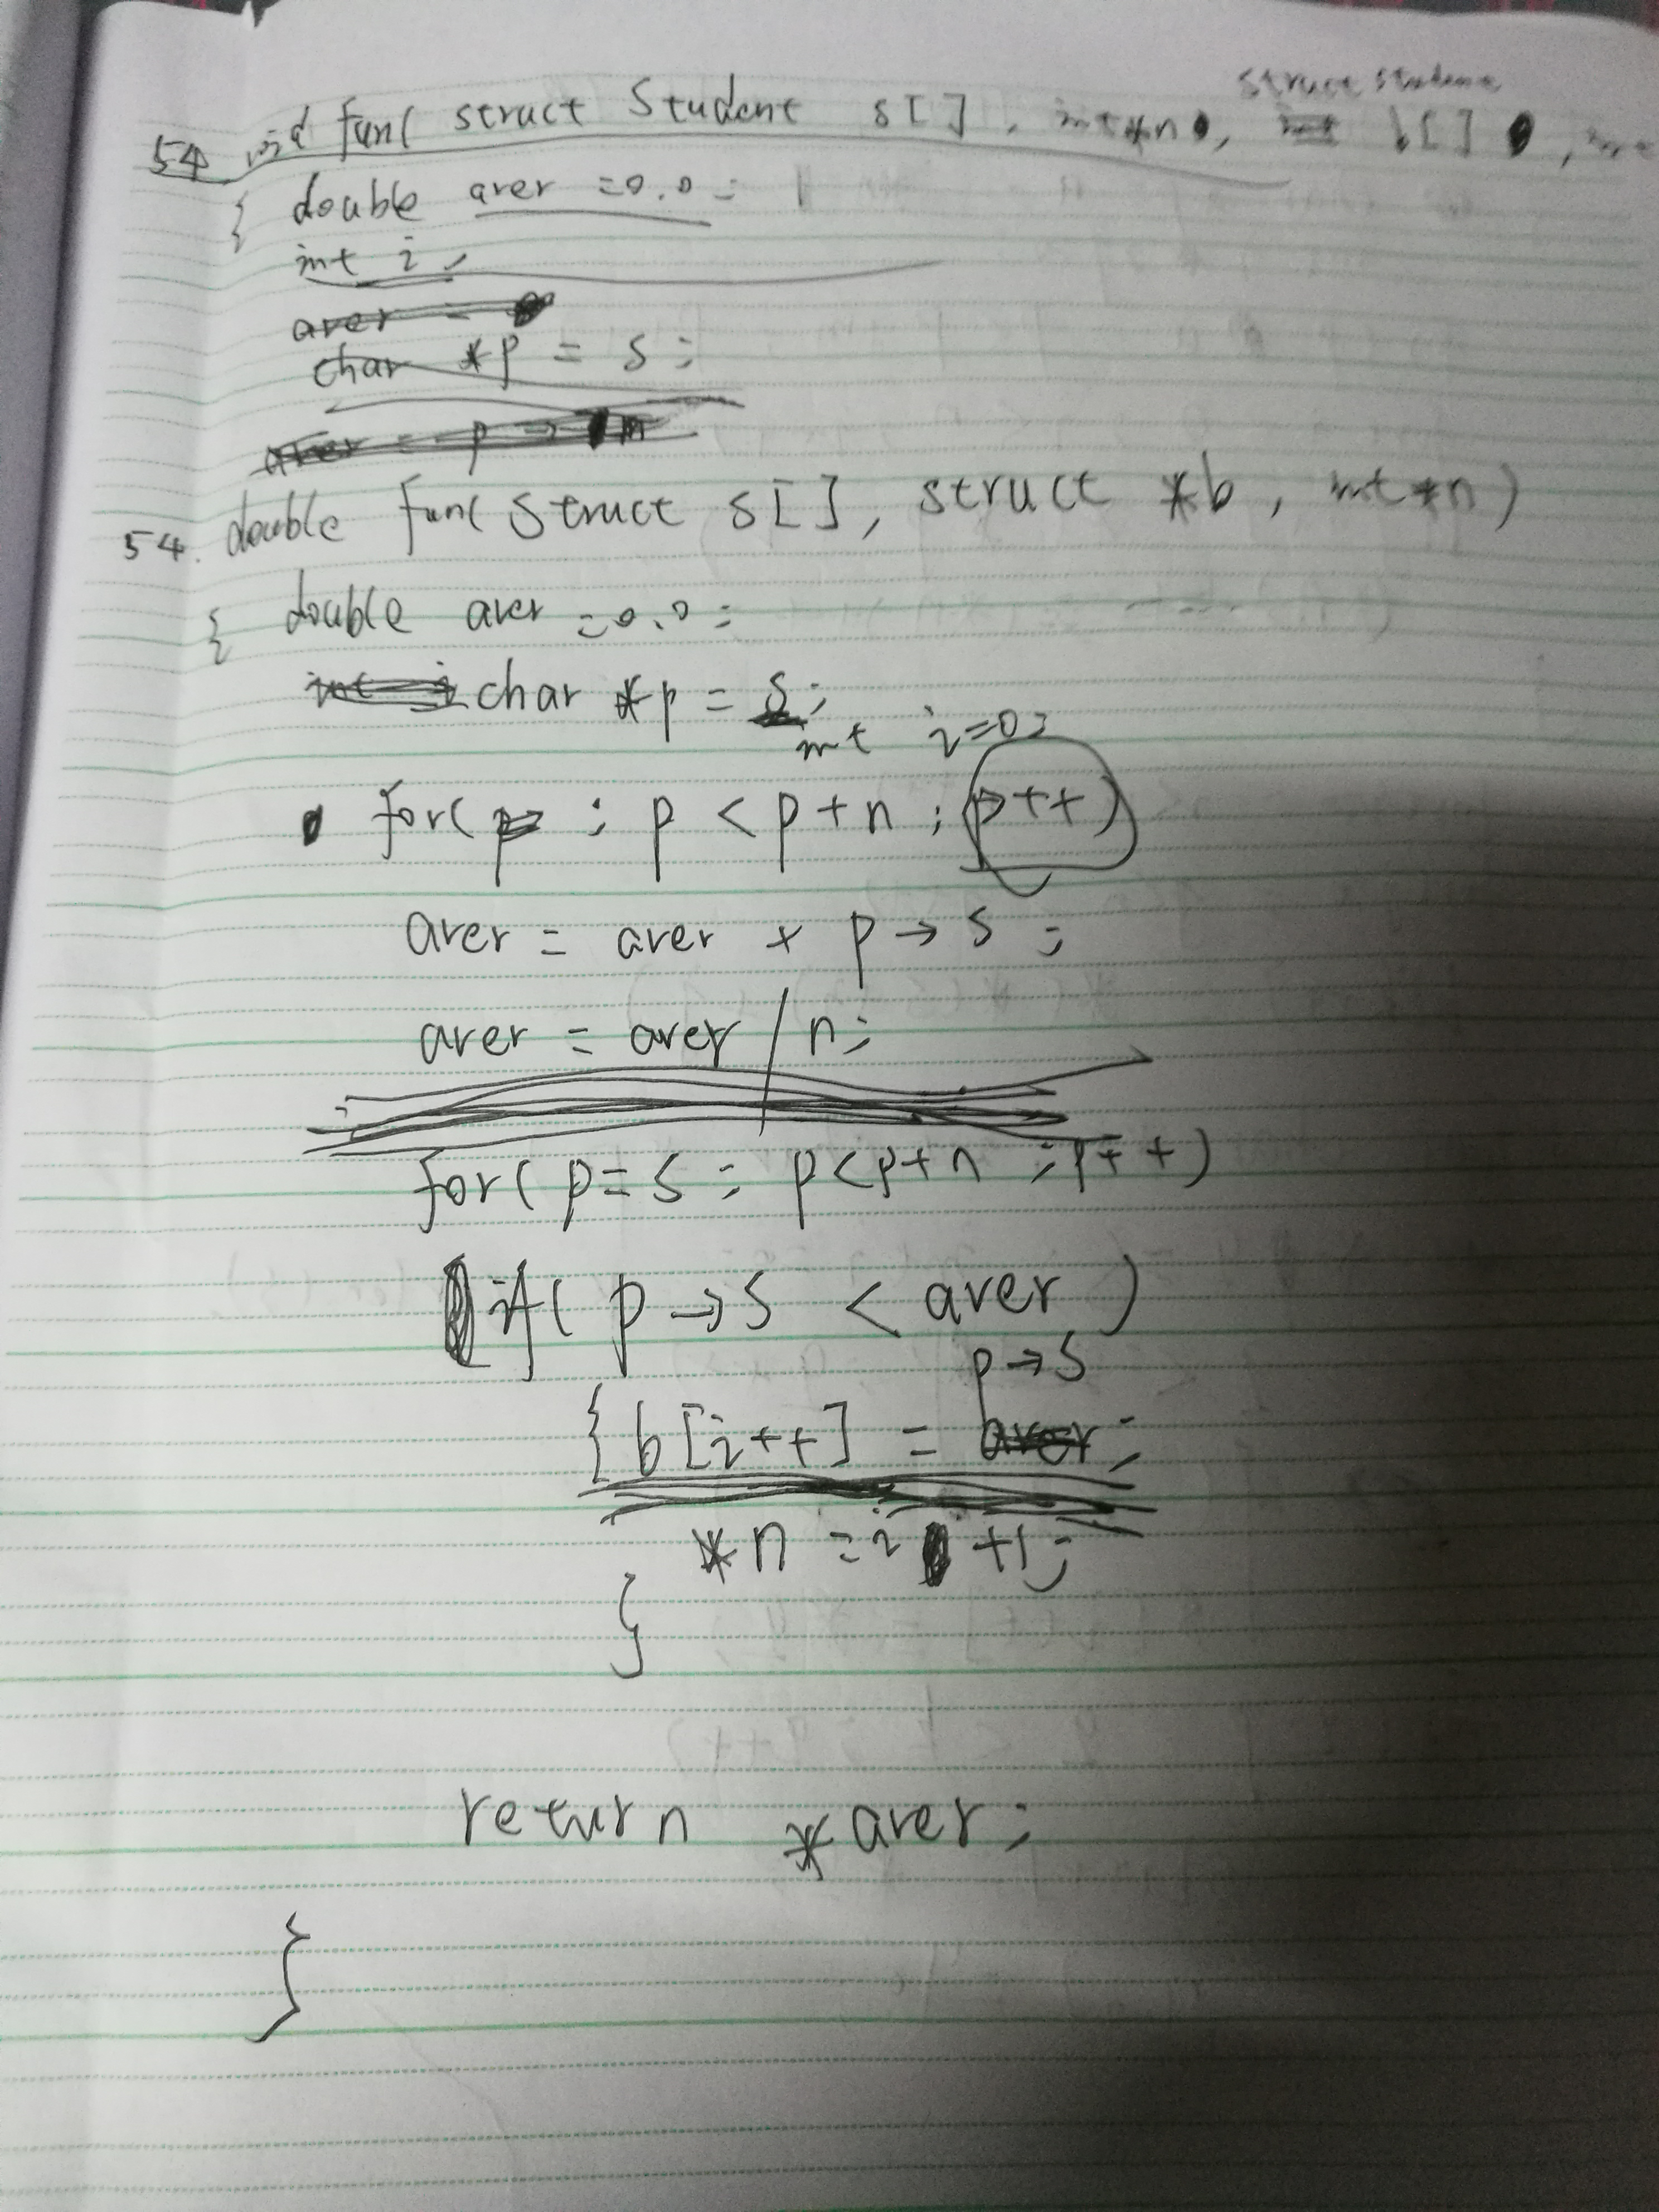 54 void fun( struct Student s[], int *n, struct Student b[],
{ double aver =0.0;
int i;
aver =
char *p = s;
aver = p →
54. double fun( struct s[], struct *b, int *n)
{ double aver =0.0;
int i char *p = s;
int i=0;
for( p ; p < p+n ; p++)
aver = aver + p→s ;
aver = aver / n;
for( p=s; p<p+n ;p++)
if( p→s < aver )
p→s
{ b[i++] = aver;
*n =i +1;
}
return *aver;
}